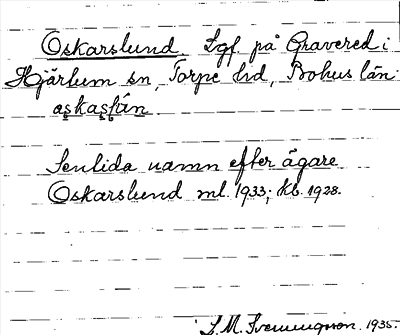 Oskarslund. Lgf. på Gravered i
Hjärtum sn, Torpe hd, Bohus län
Senlida namn efter ägare
Oskarslund ml. 1933; Kb. 1928.
S.M. Svenungsson. 1935.